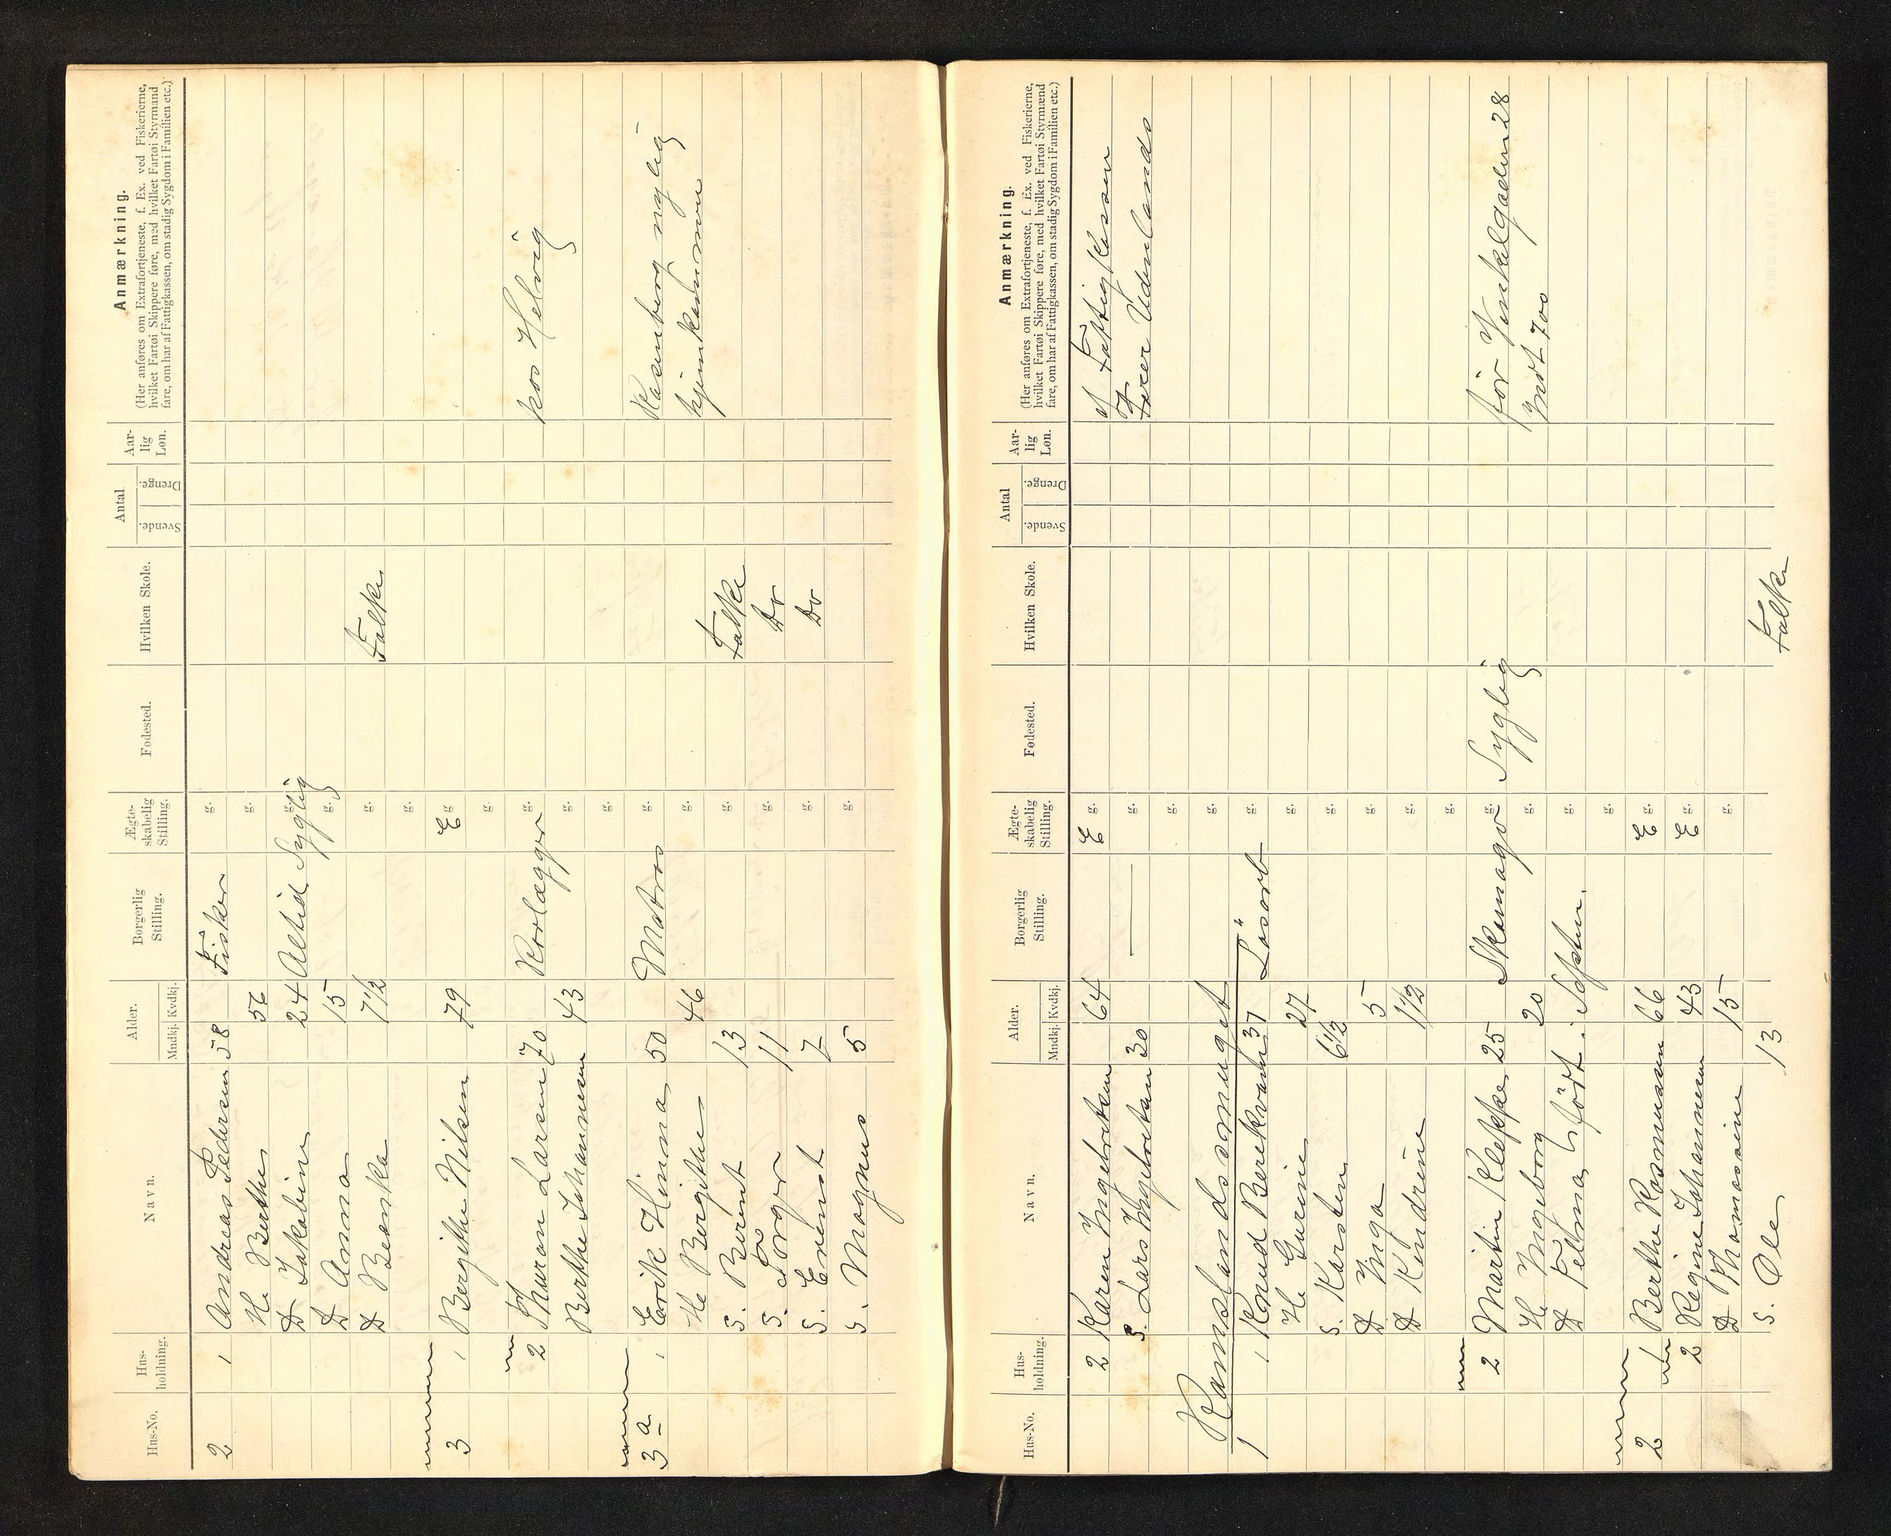 Hus-No.
Hus-
holdning.
Navn.
Alder.
Mndkj. Kvdkj.
Borgerlig
Stilling.
Ægte-
skabelig
Stilling.
Fødested.
Hvilken Skole.
Antal
Svende. Drenge.
Aar-
lig
Løn.
Anmærkning.
(Her anføres om Extrafortjeneste, f. Ex. ved Fiskerierne,
hvilket Fartøi Skippere føre, med hvilket Fartøi Styrmænd
fare, om har af Fattigkassen, om stadig Sygdom i Familien etc.)
2 1 Andreas Pedersen 58 Fisker g.
H. Berthe 56 g.
D Jakobine 24 Altid Syglig g.
D Anna 15 g.
D 7½ g. Falke
g.
3 1 Bergithe Nilsen 79 E g.
g.
2 Thuron Larsen 70 g. hos Helvig
Berthe Johannesen 43 g.
g.
3 a 1 Eerik Hinna 50 Matros g. Rosenberg nylig
He Bergithe 46 g. hjemkommen
S. Bernt 13 g. Falke
S. Torger 11 g. Do
S. Ernst 7 g. Do
S. Magnus 5 g.
Hus-No.
Hus-
holdning.
Navn.
Alder.
Mndkj. Kvdkj.
Borgerlig
Stilling.
Ægte-
skabelig
Stilling.
Fødested.
Hvilken Skole.
Antal
Svende. Drenge.
Aar-
lig
Løn.
Anmærkning.
(Her anføres om Extrafortjeneste, f. Ex. ved Fiskerierne,
hvilket Fartøi Skippere føre, med hvilket Fartøi Styrmænd
fare, om har af Fattigkassen, om stadig Sygdom i Familien etc.)
2 Karen Ingebretsen 64 E g. af Fattig Kassen
S. Lars Ingebretsen 30 — g. Farer Udenlands
g.
Ramslandsmuget g.
1 1 Knud Berekvam 37 Løsarb g.
He Gurine 27 g.
S. Karsten 6½ g.
D Inga 5 g.
D Kindrine 1½ g.
g.
2 Martin Kleppe 25 Skomager g. Syglig før Vinkelgaden 28
He Ingeborg 20 g. Indt 700
D Telma født i Septem. g.
g.
2 1 Berthe Rasmussen 66 E g.
2 Regine Johannesen 43 E g.
D Thomasine 15 g.
S. Ole 13 Falke